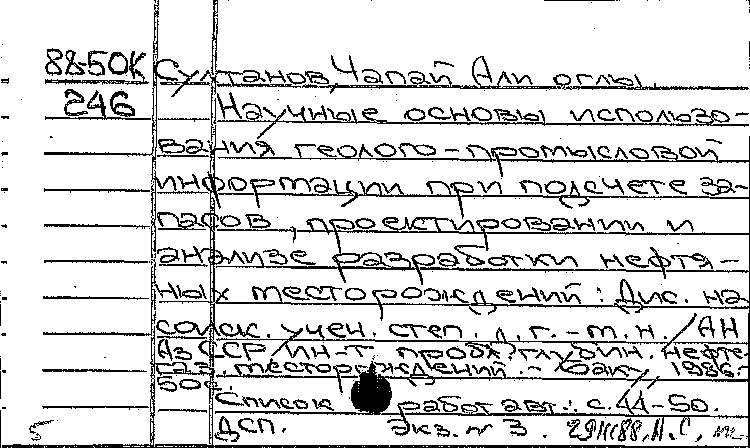 88-50К Султанов, Чапай Али оглы.
246 Научные основы использо-
вания геолого-промысловой
информации при подсчете за-
пасов, проектировании и
анализе разработки нефтя-
ных месторождений: Дис. на
соиск. учен. степ. д. г.-м. н. / АН
АзССР, Ин-т пробл. глубин. нефте-
газ. месторождений. - Баку, 1986.-
50с
Список работ авт.: с. 44-50.
ДСП. Экз. № 3.